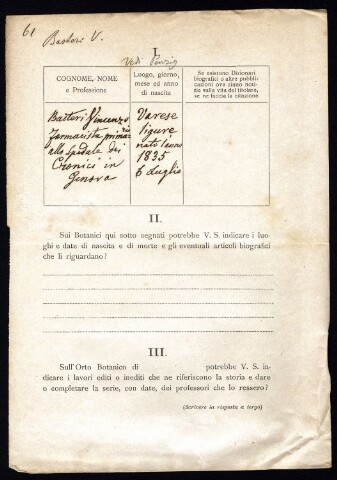 61
Basteri V.
Vedi Penzig
I.
COGNOME, NOME
e Professione
Luogo, giorno,
mese ed anno
di nascita
Se esistono Dizionari
biografici o altre pubbli-
cazioni ove siano noti-
zie sulla vita del titolare,
se ne faccia la citazione
Basteri Vincenzo
Farmacista primario
allo spedale dei
Cronici in
Genova
Varese
ligure
nato l'anno
1835
6 Luglio
II.
Sui Botanici qui sotto segnati potrebbe V. S. indicare i luo-
ghi e date di nascita e di morte e gli eventuali articoli biografici
che li riguardano?
III.
Sull'Orto Botanico di potrebbe V. S. in-
dicare i lavori editi o inediti che ne riferiscono la storia e dare
o completare la serie, con date, dei professori che lo ressero?
(Scrivere la risposta a tergo)